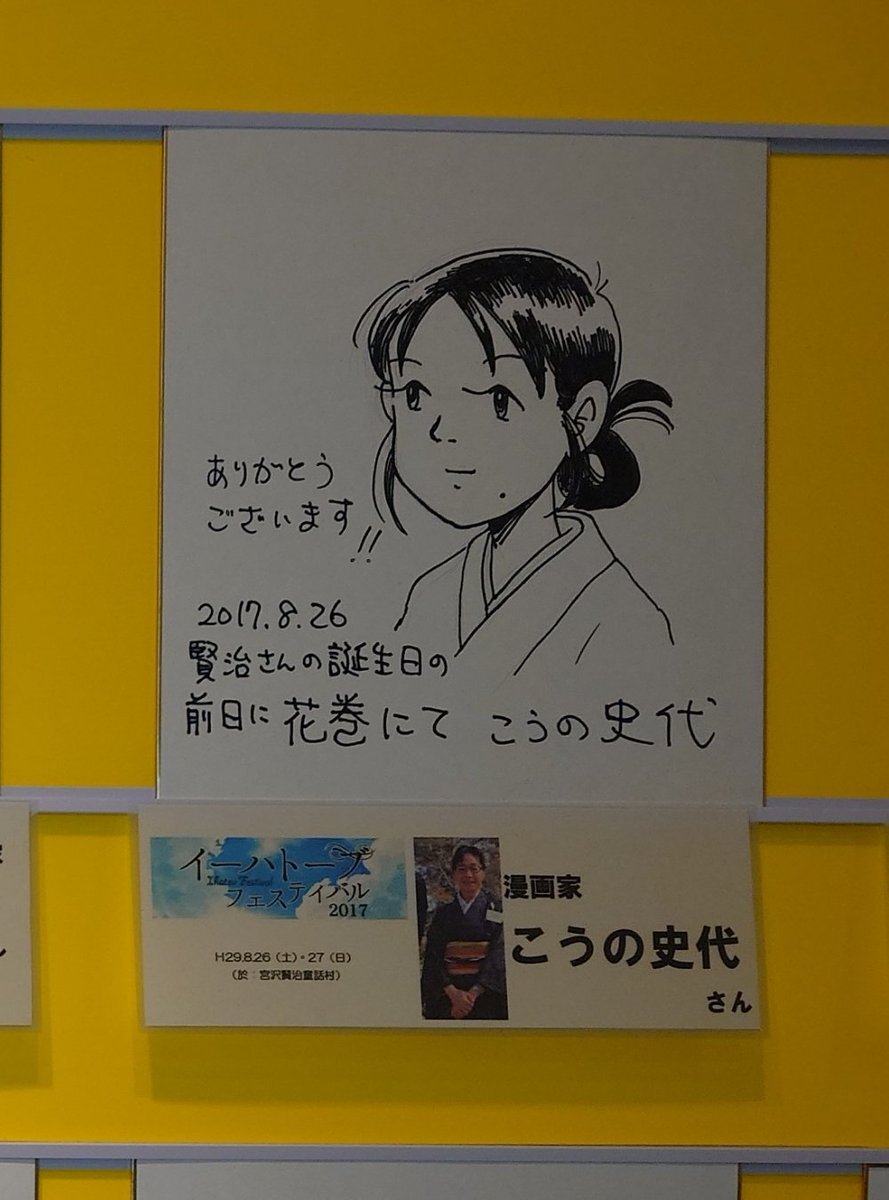 ありがとう
ございます!!
2017.8.26
賢治さんの誕生日の
前日に 花巻にて こうの史代
イーハトーブ
Ihatov Festival
フェスティバル
2017
H29.8.26（土）・27（日）
（於：宮沢賢治童話村）
漫画家
こうの史代
さん